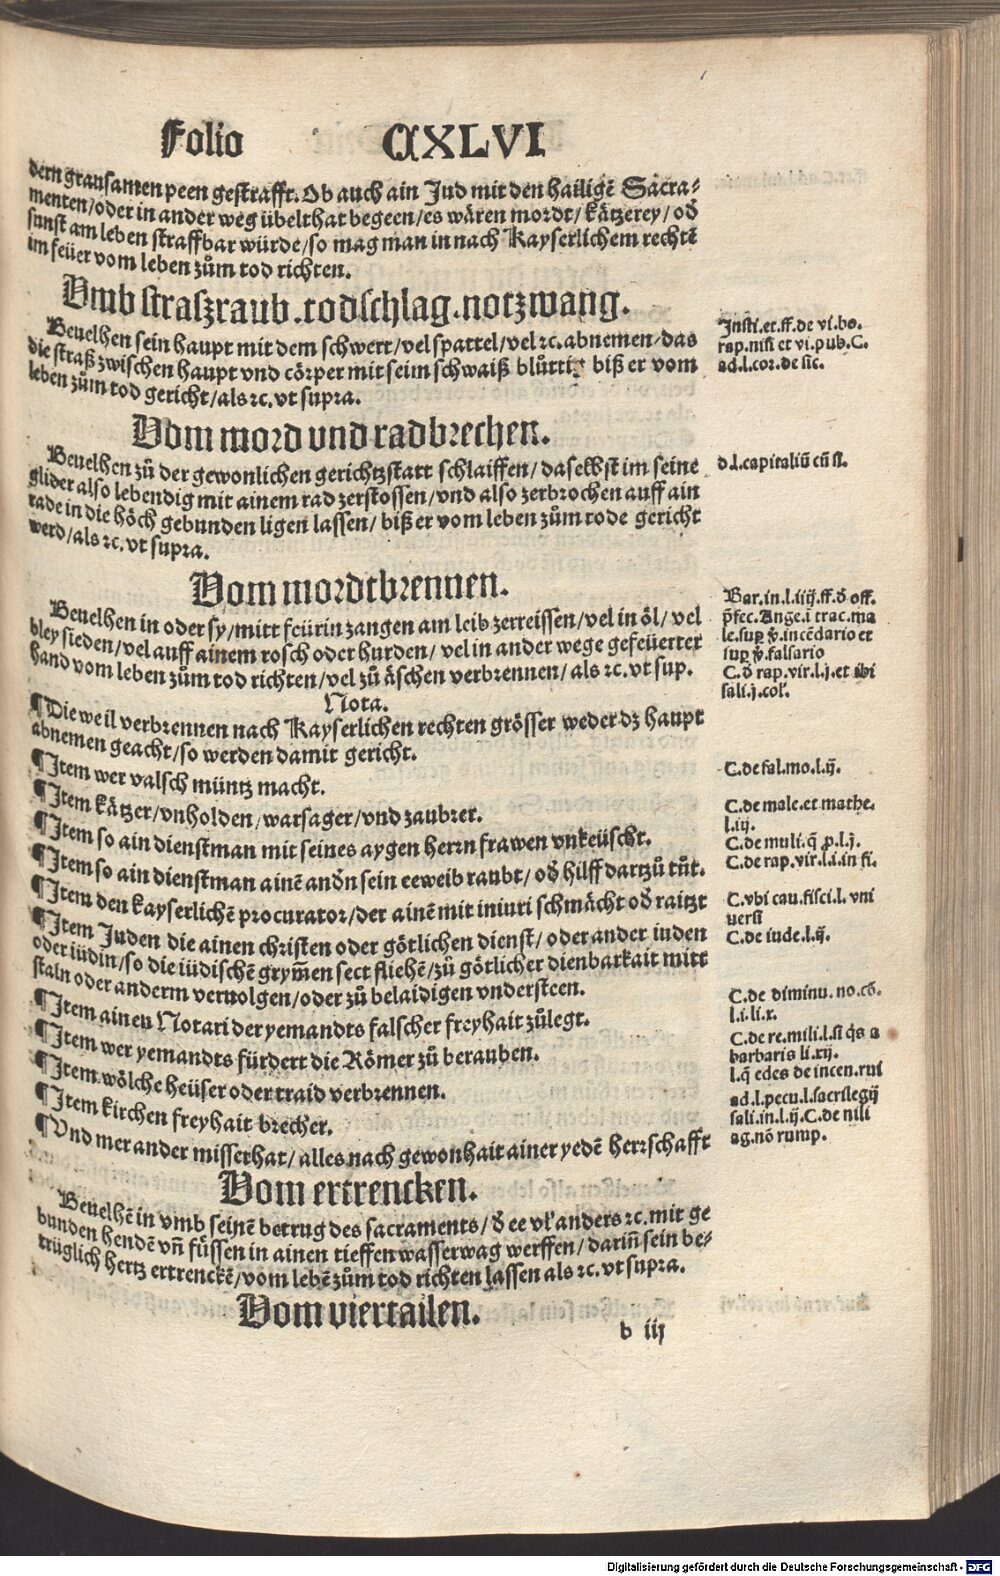 Folio CXLVI
dern grausamen peen gestrafft. Ob auch ain Jud mit den hailigē Sacra⸗
menten/oder in ander weg übelthat begeen/es wären mordt/kätzerey/oď
sunst am leben straffbar würde/so mag man in nach Kayserlichem rechtē
im feüer vom leben zům tod richten.
Vmb straszraub.todschlag.notzwang.
Beuelhen sein haupt mit dem schwert/vel spattel/vel ꝛc.abnemen/das
die straß zwischen haupt vnd cörper mit seim schwaiß blůttig biß er vom
leben zům tod gericht/als ꝛc.vt supra.
Insti.et.ff.de vi.bo.
rap.nisi et vi.pub.C.
ad.l.cor.de sic.
Vom mord vnd radbrechen.
Beuelhen zů der gewonlichen gerichtzstatt schlaiffen/daselbst im seine
glider also lebendig mit ainem rad zerstossen/vnd also zerbrochen auff ain
rade in die höch gebunden ligen lassen/biß er vom leben zům tode gericht
werd/als ꝛc.vt supra.
d.l.capitaliū cū st.
Vom mordtbrennen.
Beuelhen in oder sy/mitt feürin zangen am leib zerreissen/vel in öl/vel
bley sieden/vel auff ainem rosch oder hurden/vel in ander wege gefeüerter
hand vom leben zům tod richten/vel zů äschen verbrennen/als ꝛc.vt sup.
Bar.in.l.iiij.ff.ď off.
p̄fec.Ange.i trac.ma
le.sup v̄.incēdario et
sup v̄.falsario
C.ď rap.vir.l.j.et ibi
sali.j.col.
Nota.
¶Die weil verbrennen nach Kayserlichen rechten grösser weder dz haupt
abnemen geacht/so werden damit gericht.
¶Item wer valsch müntz macht.
C.de fal.mo.l.ij.
¶Item kätzer/vnholden/warsager/vnd zaubrer.
C.de male.et mathe.
l.iij.
¶Item so ain dienstman mit seines aygen herrn frawen vnkeüscht.
C.de muli.q̄ p.l.j.
¶Item so ain dienstman ainē andn sein eeweib raubt/oď hilff dartzů tůt.
C.de rap.vir.l.i.in fi.
¶Item den kayserlichē procurator/der ainē mit iniuri schmächt oď raitzt
C.vbi cau.fisci.l.vni
uersi
¶Item Juden die ainen christen oder götlichen dienst/oder ander iuden
oder iüdin/so die iüdischē grym̄en sect fliehē/zů götlicher dienbarkait mitt
staln oder anderm veruolgen/oder zů belaidigen vndersteen.
C.de iude.l.ij.
¶Item ainen Notari der yemandts falscher freyhait zůlegt.
C.de diminu.no.cō.
l.i.li.x.
¶Item wer yemandts fürdert die Römer zů berauben.
C.de re.mili.l.si q̄s a
barbaris li.xij.
¶Item wölche heüser oder traid verbrennen.
l.q̄ edes de incen.rui
¶Item kirchen freyhait brecher.
ad.l.pecu.l.sacrilegij
sali.in.l.ij.C.de nili
ag.nō rump.
¶Vnd mer ander missethat/alles nach gewonhait ainer yedē herrschafft
Vom ertrencken.
Beuelhē in vmb seinē betrug des sacraments/ď ee vl' anders ꝛc.mit ge
bunden hendē vn̄ füssen in ainen tieffen wasserwag werffen/darin̄ sein be⸗
trüglich hertz ertrenckē/vom lebē zům tod richten lassen als ꝛc.vt supra.
Vom viertailen.
b iij
Digitalisierung gefördert durch die Deutsche Forschungsgemeinschaft - DFG